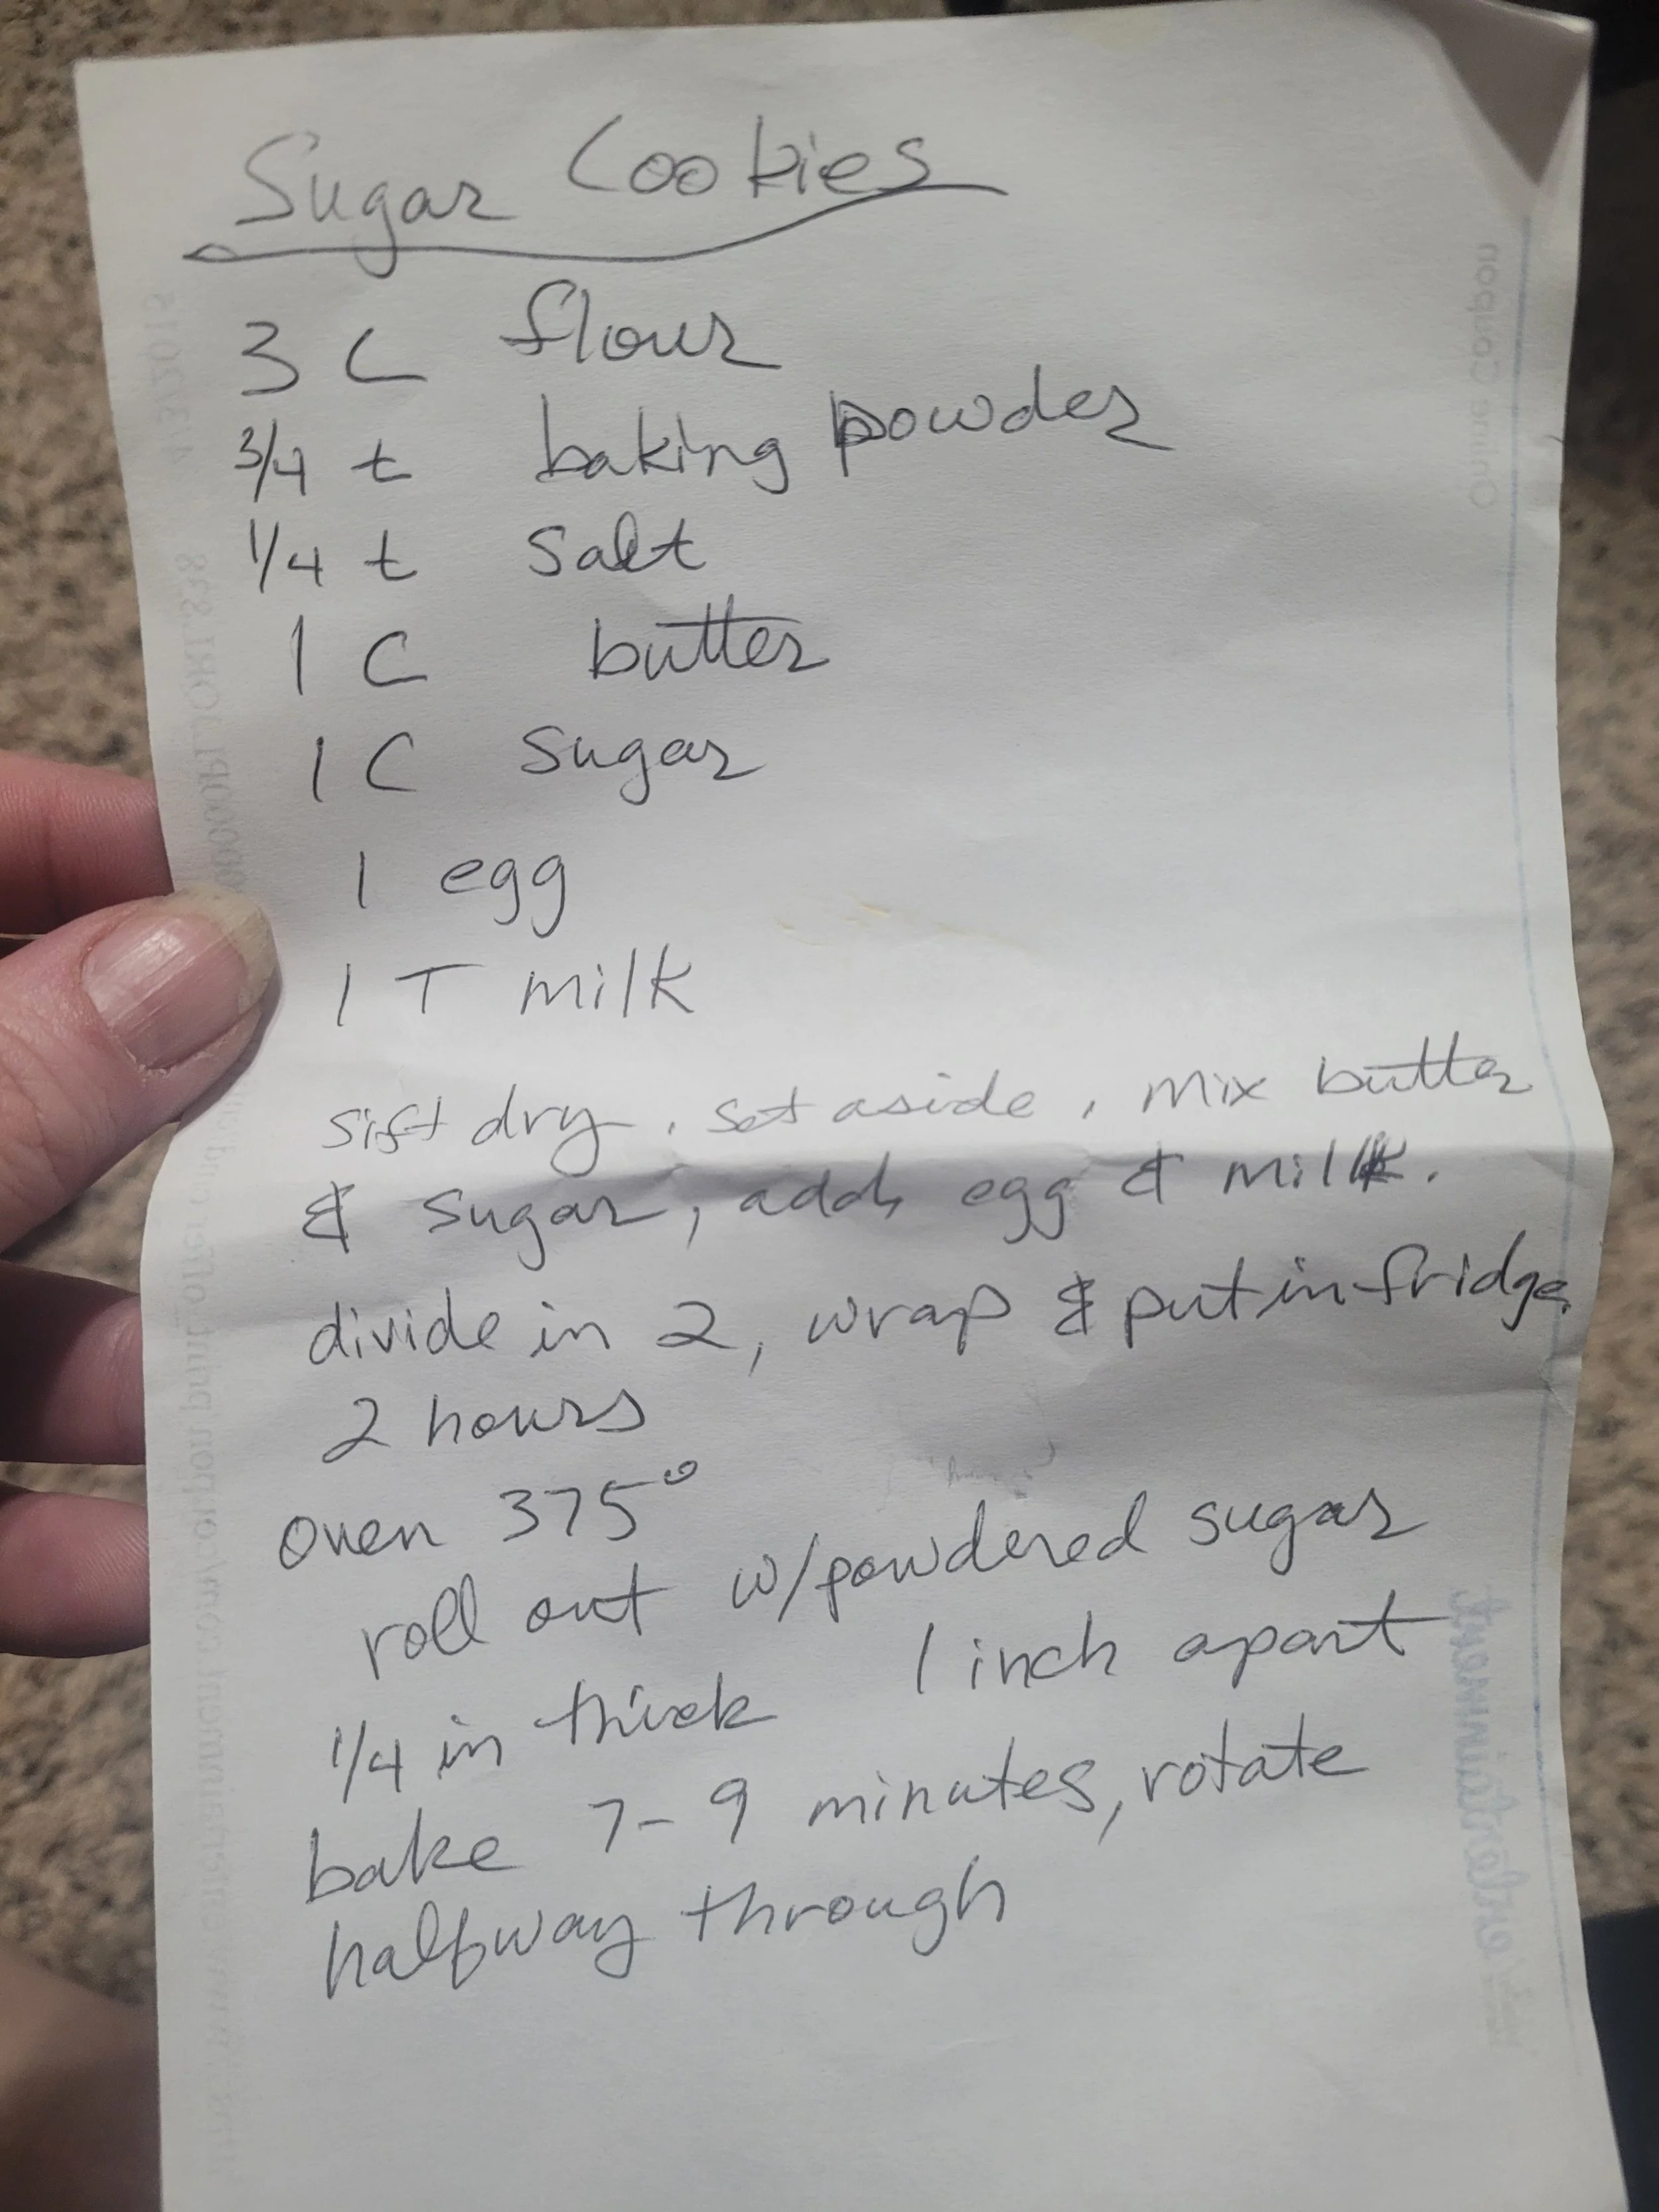 Sugar Cookies
3 C flour
3/4 t baking powder
1/4 t salt
1 C butter
1 C sugar
1 egg
1 T milk
sift dry, set aside, mix butter
& sugar, add egg & milk.
divide in 2, wrap & put in fridge
2 hours
oven 375°
roll out w/powdered sugar
1/4 in thick 1 inch apart
bake 7-9 minutes, rotate
halfway through
Online Coupon